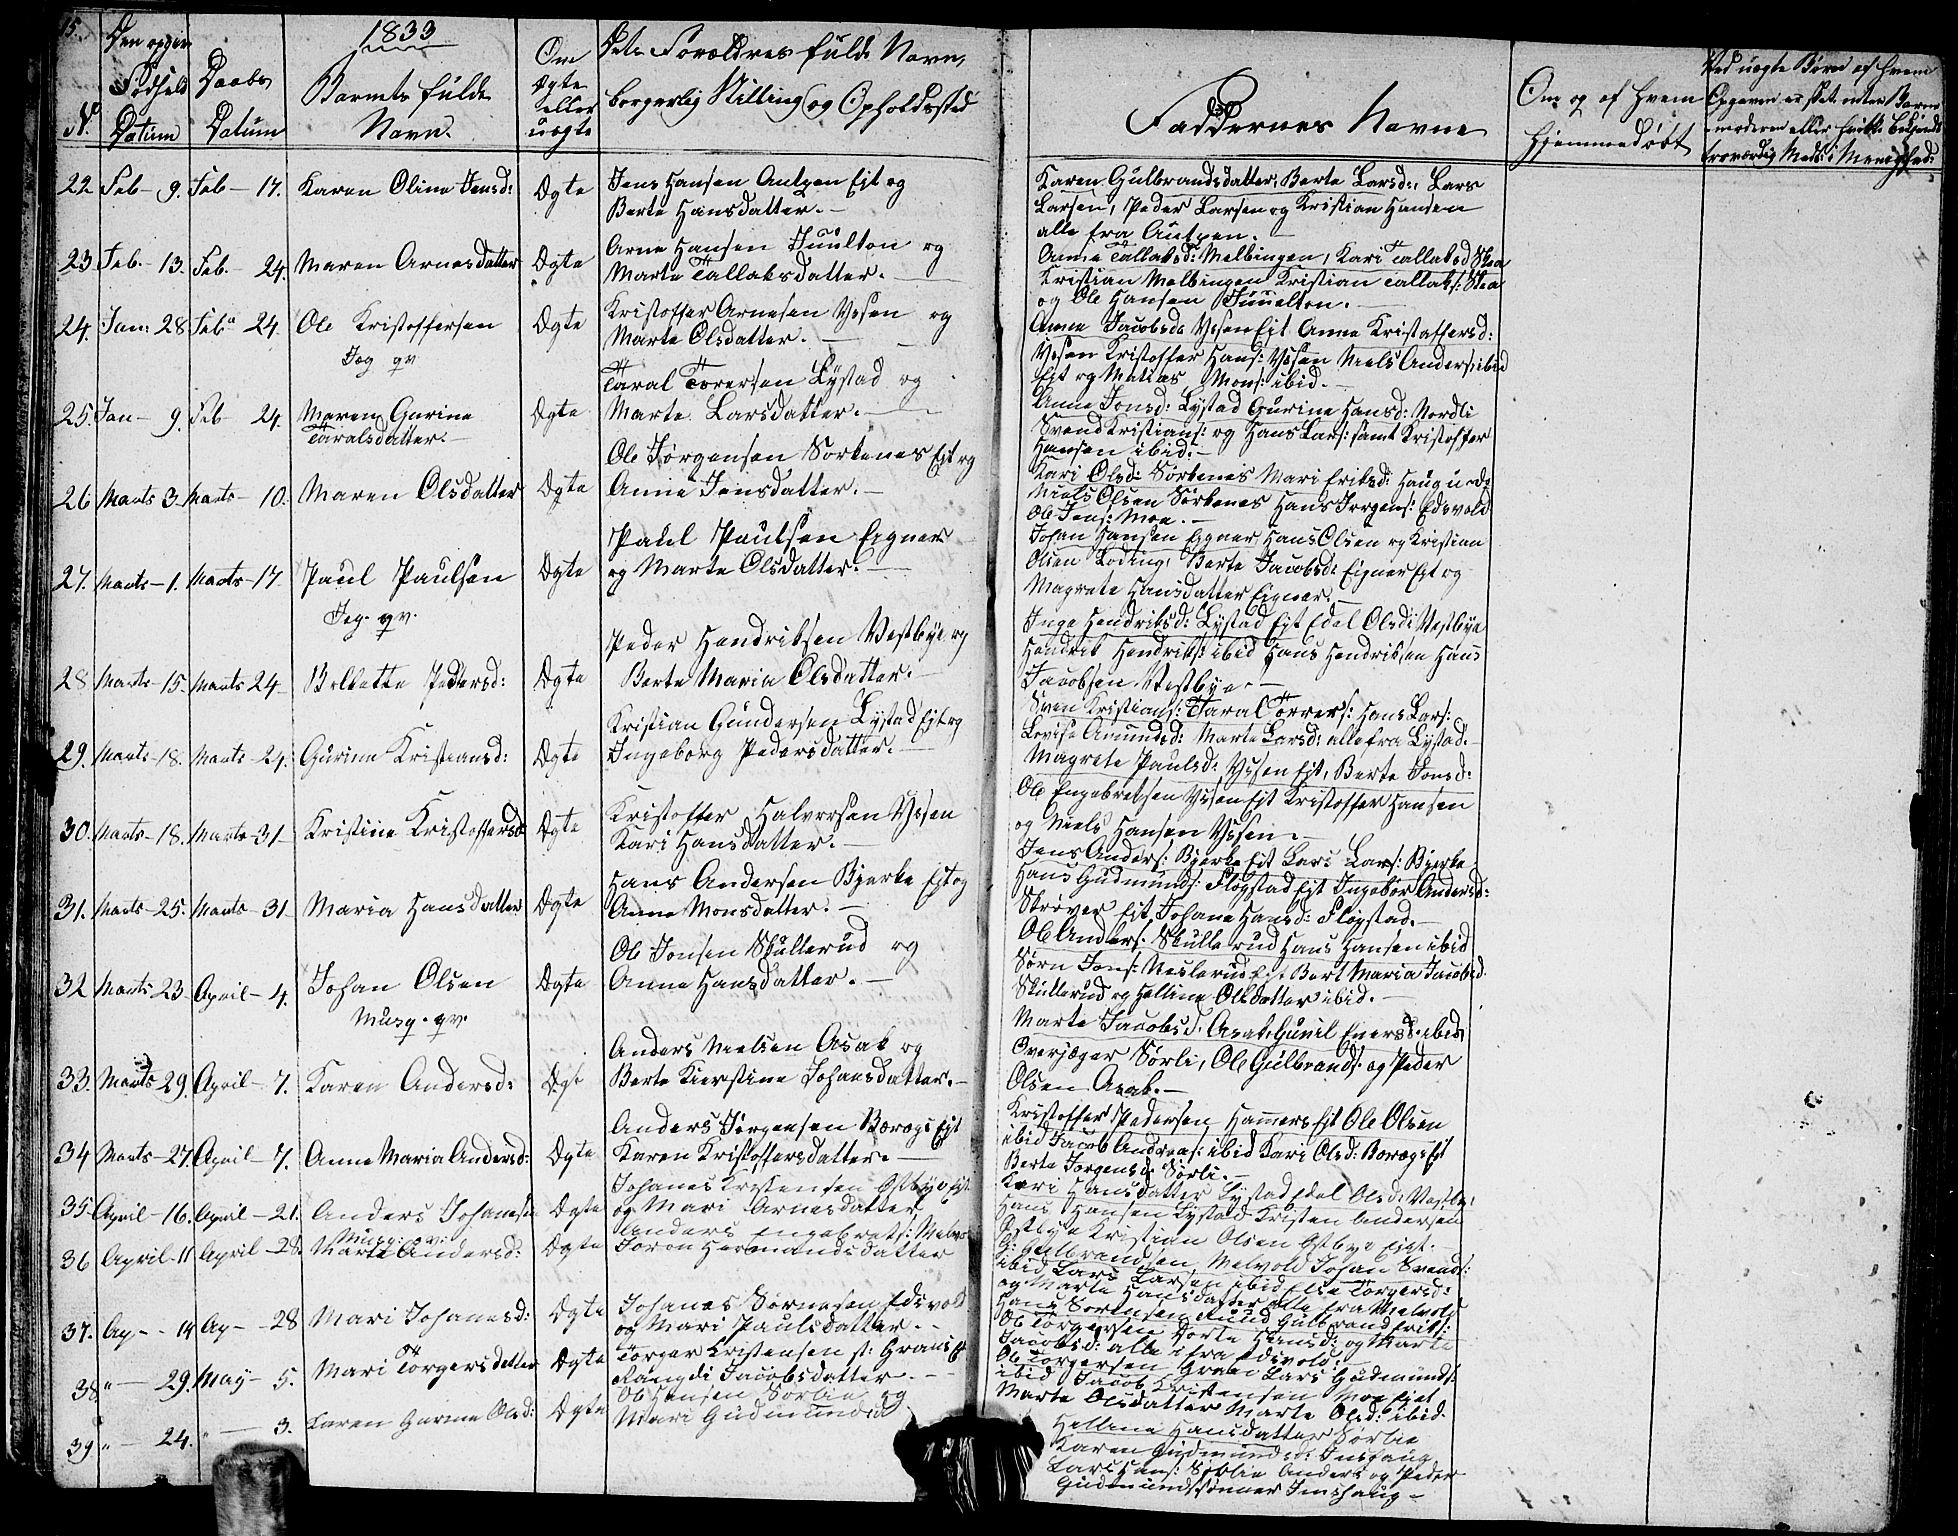 15.
1833
Den opgivne Fødsels Datum
Daabs Datum
Barnets fulde Navn.
Om Ægte eller uægte
Dets Forældres fulde Navn,
borgerlig Stilling og Opholdssted
Faddernes Navne
Om og af hvem
hjemmedøbt
Ved uægte Børn af hvem
N.
22 Feb - 9. Feb - 17. Karen Oline Jensd: Ægte Jens Hansen Autzen Ejt og
Berte Hansdatter. -
Karen Gulbrandsdatter, Berte Larsd:, Lars
Larsen, Peder Larsen og Kristian Hansen
alle fra Autzen. -
23 Feb. - 13. Feb. - 24. Maren Arnesdatter Ægte Arne Hansen Juulton og
Marte Tallaksdatter. -
Anne Tallaksd: Melbingen, Kari Tallaksd Stea
Kristian Melbingen Kristian Tallaks: Stea
og Ole Hansen Juuelton. -
24. Jan: 28 Feb 24. Ole Kristoffersen Ægte Kristoffer Arnesen Vssen og
Jag qv
Marte Olsdatter. -
Anne Jacobsd: Vssen Ejt Anne Kristoffersd:
Vssen Kristoffer Hans: Vssen Niels Anders: ibid
Ejt og Matias Mons: ibid. -
25. Jan - 9. Feb - 24. Maren Gurine
Taralsdatter. - Ægte Taral Torersen Lystad og
Marte Larsdatter. -
Anne Jonsd: Lystad Gurine Hansd: Nordli
Svend Kristians: og Hans Lars: samt Kristoffer
Hansen ibid: -
26 Marts 3. Marts - 10. Maren Olsdatter Ægte Ole Jørgensen Sørbenes Ejt og
Anne Jensdatter. -
Kari Olsd: Sørbenes Mari Eriksd: Haug
Niels Olsen Sørbenes Hans Jørgens: Edsvold
Ole Jens: Moe. -
27. Marts - 1. Marts - 17 Paul Paulsen Ægte Paul Paulsen Eigner
Jeg. qv.
og Marte Olsdatter. -
Johan Hansen Eigner Hans Olsen og Kristian
Olsen Loding, Berte Jacobsd: Eigner Ejt og
Magrete Hansdatter Eigner. -
28 Marts - 15. Marts 24 Bollette Pedersd: Ægte Peder Hendriksen Vestbye og
Berte Maria Olsdatter. -
Inge Hendriksd: Lystad Ejt Edel Olsd: Vestbye
Hendrik Hendriks: ibid Hans Hendriksen Hans
Jacobsen Vestbye. -
29. Marts - 18. Marts - 24. Gurine Kristiansd: Ægte Kristian Gundersen Lystad Ejt og
Ingeborg Pedersdatter. -
Sven Kristians: Taral Torrers: Hans Lars:
Lovise Amundsd: Marte Larsd: alle fra Lystad. -
30. Marts - 18. Marts - 31 Kristine Kristoffersd: Ægte Kristoffer Halvorsen Vssen
Kari Hansdatter. -
Magrete Paulsd: Vssen Ejt, Berte Jonsd:
Ole Engebretsen Vssen Ejt Kristoffer Hansen
og Niels Hansen Vssen. -
31. Marts - 25. Marts - 31 Maria Hansdatter Ægte Hans Andersen Bjerke Ejt og
Anne Monsdatter. -
Jens Anders: Bjerke Ejt Lars Lars: Bjerke
Hans Gudmunds: Fløgstad Ejt Ingebor Andersd:
Skrøver Ejt Johane Hansd: Fløgstad. -
32 Marts 23 April - 4. Johan Olsen Ægte Ole Jonsen Skullerud og
Musq. qv.
Anne Hansdatter. -
Ole Anders: Skullerud Hans Hansen ibid
Sørn Jons: Neslerud Ejt Bert Maria Jacobsd.
Skullerud og Helline Olsdatter ibid. -
33. Marts 29. April - 7. Karen Andersd: Ægt Anders Nielsen Asak og
Berte Kierstine Johansdatter. -
Marte Jacobsd. Asak Gunil Enersd: ibid
Overjæger Sørli, Ole Gulbrands: og Peder
Olsen Asak. -
34 Marts - 27. April - 7. Anne Maria Andersd: Ægte Anders Jørgensen Boregs Ejt
Karen Kristoffersdatter. -
Kristoffer Pedersen Hamers Ejt Ole Olsen
ibid Jacob Andreas: ibid Kari Olsd: Boregs Ejt
Berte Jørgensd: Sørli. -
35 April - 16. April - 21. Anders Johanesen Ægte Johanes Kristensen Ostbye Ejt
Musq: qv:
og Mari Arnesdatter
Kari Hansdatter Lystad Edel Olsd: Vestby:
Hans Hansen Lystad Kristen Andersen
Ostbye Kristian Olsen Ostbye Ejet. -
36 April - 11 April - 28 Marte Andersd: Ægte Anders Engebrets: Melvold
Joron Hermandsdatter
G: Gulbrandsen Melvold Johan Svends:
ibid Lars Larsen ibid Else Torgersd:
og Marte Hansdatter alle fra Melvold
37. Ap - 14 Ap - 28 Mari Johanesd: Ægte Johanes Sørnesen Edsvold
og Mari Paulsdatter. -
Hans Sørensen Knud Gulbrand Eriks:
Ole Torgersen Dorte Hansd: og Marte
Jacobsd: alle i fra Edsvold: -
38 " - 29. May - 5. Mari Torgersdatter Ægte Torger Kristensen Grans Ejt
Rangdi Jacobsdatter. -
Ole Torgersen Gran Lars Gudmunds:
ibid Jacob Kristensen Moe Ejet
Marte Olsdatter Marte Olsd: ibid.
39 " - 24. " - 3. Karen Gurine Olsd: Ægte Ole Hansen Sørbie og
Mari Gudmundsd
Hellene Hansdatter Sørlie
Karen Gudmundsd: Jushaug
Lars Hans: Sørlie Anders og Peder
Gudmundssønner Imshaug -